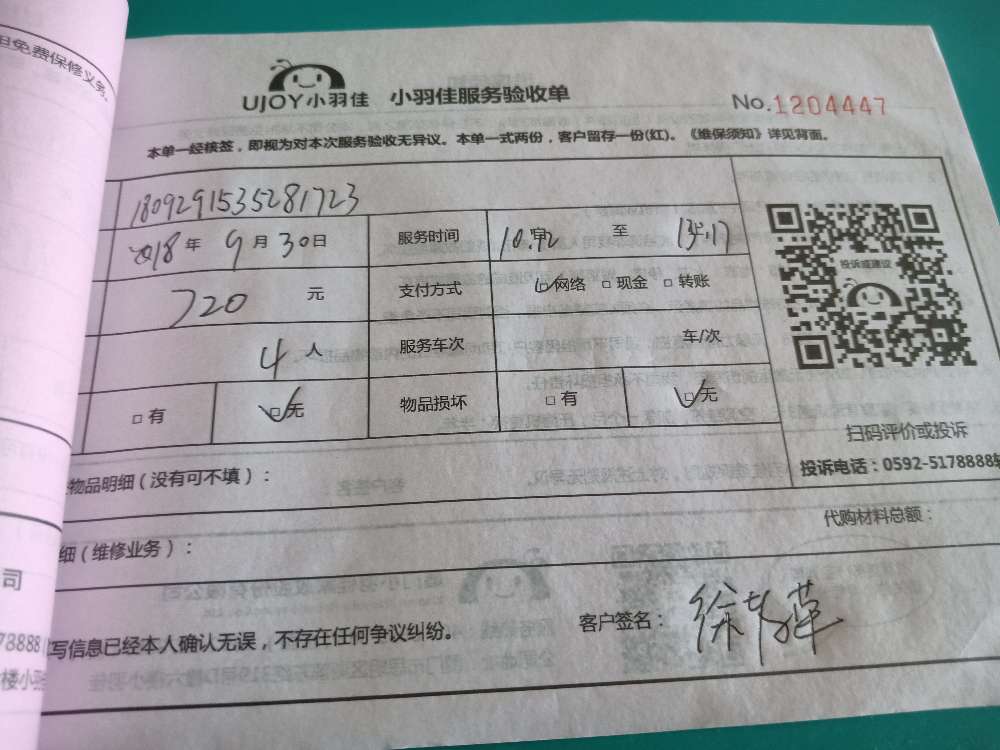 担免费保修义务。
UJOY小羽佳 小羽佳服务验收单
No.1204447
本单一经核签，即视为对本次服务验收无异议。本单一式两份，客户留存一份(红)。《维保须知》详见背面。
1809291535281723
2018年9月30日 服务时间 10.42 至 13:17
720 元 支付方式 □网络 □现金 □转账
4人 服务车次 车/次
□有 □无 物品损坏 □有 □无
投诉或建议
扫码评价或投诉
投诉电话：0592-5178888转
物品明细（没有可不填）：
代购材料总额：
细（维修业务）：
司
写信息已经本人确认无误，不存在任何争议纠纷。
客户签名：
78888
楼小羽